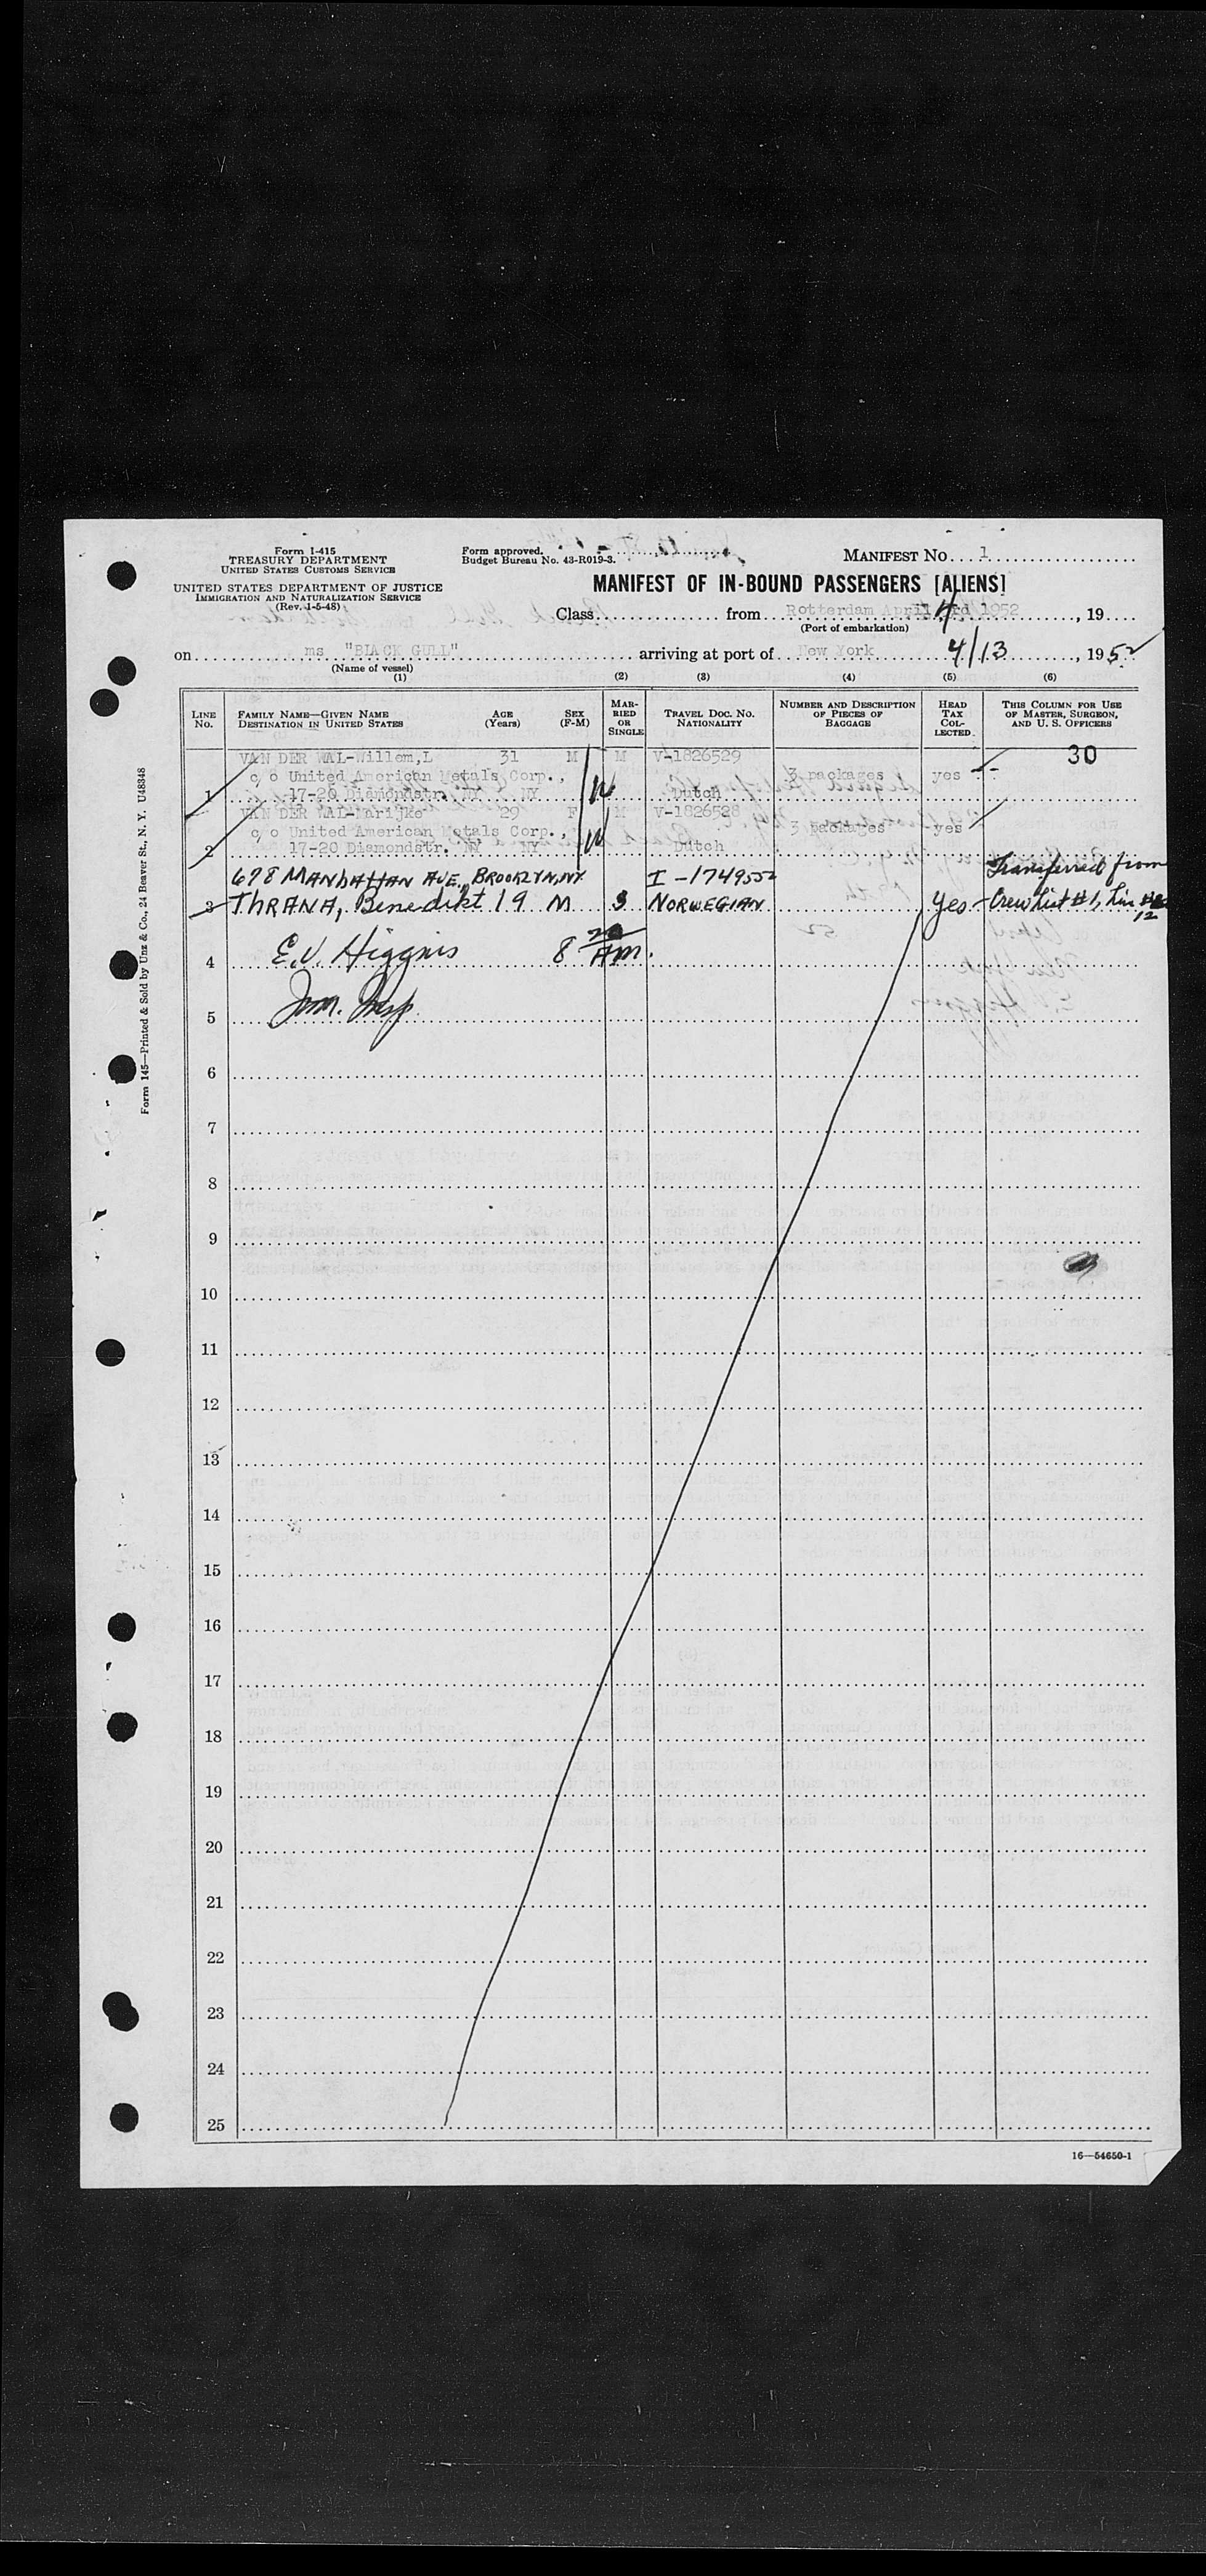 Form I-415
TREASURY DEPARTMENT
UNITED STATES CUSTOMS SERVICE
UNITED STATES DEPARTMENT OF JUSTICE
IMMIGRATION AND NATURALIZATION SERVICE
(Rev. 1-5-48)
Form approved.
Budget Bureau No. 43-R019-3.
MANIFEST No. 1
MANIFEST OF IN-BOUND PASSENGERS [ALIENS]
Class from Rotterdam April 4 rd 1952, 19
(Port of embarkation)
on ms "BLACK GULL" arriving at port of New York 4/13, 1952
(Name of vessel)
(1) (2) (3) (4) (5) (6)
LINE No.
FAMILY NAME—GIVEN NAME
DESTINATION IN UNITED STATES
AGE (Years)
SEX (F-M)
MARRIED OR SINGLE
TRAVEL DOC. No.
NATIONALITY
NUMBER AND DESCRIPTION OF PIECES OF BAGGAGE
HEAD TAX COLLECTED
THIS COLUMN FOR USE OF MASTER, SURGEON, AND U. S. OFFICERS
VAN DER WAL-Willem,L 31 M M V-1826529 30
c/o United American Metals Corp., 3 packages yes --
1 17-20 Diamondstr. NY NY W Dutch
VAN DER WAL-Marijke 29 F M V-1826528
c/o United American Metals Corp., 3 packages yes
2 17-20 Diamondstr. NY NY W Dutch
678 MANhATTAN AVE., BROOKLYN, NY I-1749552 Transferred from
3 ThRANA, Benedikt 19 M S NORWEGIAN Yes - Crew List #1, Line #
12
4 E.V. Higgins 8 20 AM.
5 Imm. Insp.
6
7
8
9
10
11
12
13
14
15
16
17
18
19
20
21
22
23
24
25
16—54650-1
Form 145—Printed & Sold by Unz & Co., 24 Beaver St., N. Y. U48348